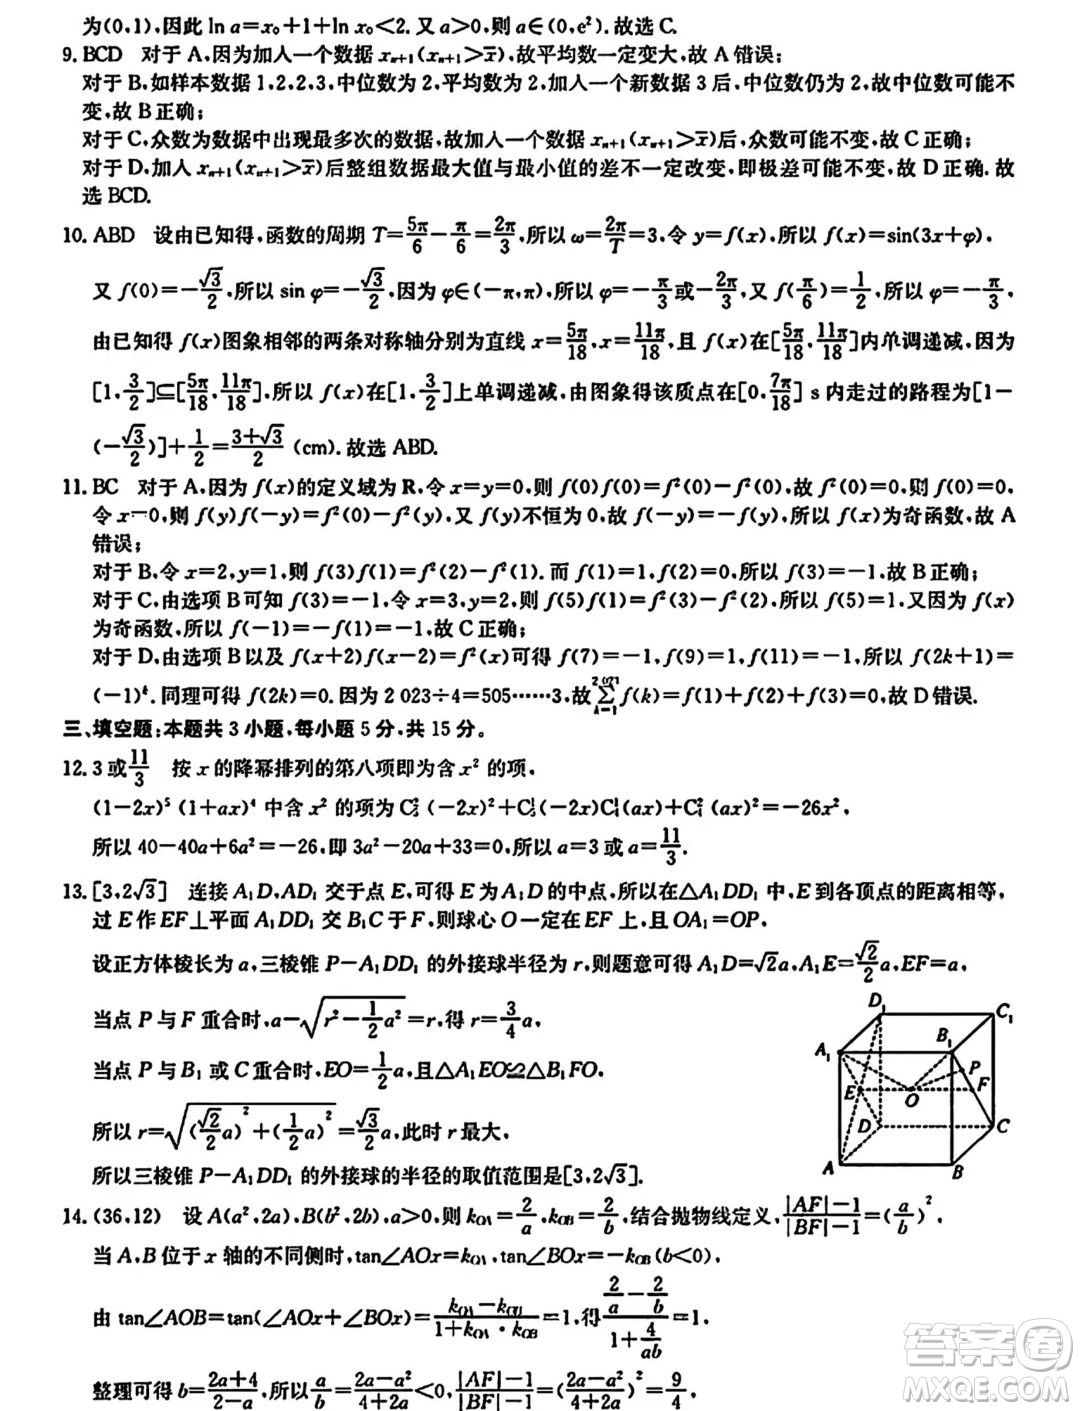 为(0,1),因此 ln a=x₀+1+ln x₀<2.又 a>0,则 a∈(0,e²).故选 C.
9. BCD 对于 A,因为加人一个数据 xₙ₊₁(xₙ₊₁>x̄),故平均数一定变大,故 A 错误;
对于 B,如样本数据 1,2,2,3,中位数为 2,平均数为 2,加人一个新数据 3 后,中位数仍为 2,故中位数可能不
变,故 B 正确;
对于 C,众数为数据中出现最多次的数据,故加人一个数据 xₙ₊₁(xₙ₊₁>x̄)后,众数可能不变,故 C 正确;
对于 D,加人 xₙ₊₁(xₙ₊₁>x̄)后整组数据最大值与最小值的差不一定改变,即极差可能不变,故 D 正确.故
选 BCD.
10. ABD 设由已知得,函数的周期 T=5π/6−π/6=2π/3,所以 ω=2π/T=3,令 y=f(x),所以 f(x)=sin(3x+φ),
又 f(0)=−√3/2,所以 sin φ=−√3/2,因为 φ∈(−π,π),所以 φ=−π/3或−2π/3,又 f(π/6)=1/2,所以 φ=−π/3,
由已知得 f(x)图象相邻的两条对称轴分别为直线 x=5π/18,x=11π/18,且 f(x)在[5π/18,11π/18]内单调递减,
[1,3/2]⊆[5π/18,11π/18],所以 f(x)在[1,3/2]上单调递减,由图象得该质点在[0,7π/18] s 内走过的路程为[1−
(−√3/2)]+1/2=(3+√3)/2 (cm).故选 ABD.
11. BC 对于 A,因为 f(x)的定义域为 R,令 x=y=0,则 f(0)f(0)=f²(0)−f²(0),故 f²(0)=0,则 f(0)=0,
令 x=0,则 f(y)f(−y)=f²(0)−f²(y),又 f(y)不恒为 0,故 f(−y)=−f(y),所以 f(x)为奇函数,故 A
错误;
对于 B,令 x=2,y=1,则 f(3)f(1)=f²(2)−f²(1).而 f(1)=1,f(2)=0,所以 f(3)=−1,故 B 正确;
对于 C,由选项 B 可知 f(3)=−1,令 x=3,y=2,则 f(5)f(1)=f²(3)−f²(2),所以 f(5)=1,又因为 f(x)
为奇函数,所以 f(−1)=−f(1)=−1,故 C 正确;
对于 D,由选项 B 以及 f(x+2)f(x−2)=f²(x)可得 f(7)=−1,f(9)=1,f(11)=−1,所以 f(2k+1)=
(−1)ᵏ.同理可得 f(2k)=0.因为 2 023÷4=505……3,故∑f(k)=f(1)+f(2)+f(3)=0,故 D 错误.
三、填空题:本题共 3 小题,每小题 5 分,共 15 分。
12. 3 或11/3 按 x 的降幂排列的第八项即为含 x² 的项,
(1−2x)⁵(1+ax)⁴ 中含 x² 的项为 C₅²(−2x)²+C₅¹(−2x)C₄¹(ax)+C₄²(ax)²=−26x²,
所以 40−40a+6a²=−26,即 3a²−20a+33=0,所以 a=3 或 a=11/3.
13. [3,2√3] 连接 A₁D,AD₁ 交于点 E,可得 E 为 A₁D 的中点,所以在△A₁DD₁ 中,E 到各顶点的距离相等,
过 E 作 EF⊥平面 A₁DD₁ 交 B₁C 于 F,则球心 O 一定在 EF 上,且 OA₁=OP,
设正方体棱长为 a,三棱锥 P−A₁DD₁ 的外接球半径为 r,则题意可得 A₁D=√2a,A₁E=√2/2a,EF=a,
当点 P 与 F 重合时,a−√(r²−1/2a²)=r,得 r=3/4a,
当点 P 与 B₁ 或 C 重合时,EO=1/2a,且△A₁EO≌△B₁FO,
所以 r=√((√2/2a)²+(1/2a)²)=√3/2a,此时 r 最大,
所以三棱锥 P−A₁DD₁ 的外接球的半径的取值范围是[3,2√3].
D₁
C₁
A₁
B₁
P
E
O
F
D
C
A
B
14. (36,12) 设 A(a²,2a),B(b²,2b),a>0,则 k_OA=2/a,k_OB=2/b,结合抛物线定义,(|AF|−1)/(|BF|−1)=(a/b)²,
当 A,B 位于 x 轴的不同侧时,tan∠AOx=k_OA,tan∠BOx=−k_OB(b<0),
由 tan∠AOB=tan(∠AOx+∠BOx)=(k_OA−k_OB)/(1+k_OA·k_OB)=1,得(2/a−2/b)/(1+4/ab)=1,
整理可得 b=(2a+4)/(2−a),所以 a/b=(2a−a²)/(4+2a)<0,(|AF|−1)/(|BF|−1)=((2a−a²)/(4+2a))²=9/4,
答案卷
MXQE.COM